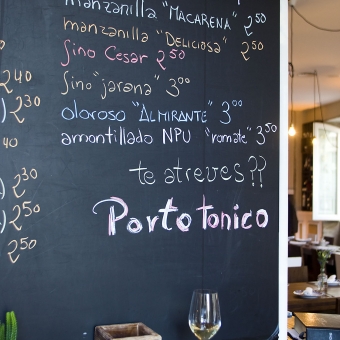 manzanilla "MACARENA" 2.50
manzanilla "DELICIOSA" 2.50
fino Cesar 2.50
fino "jarana" 3.00
oloroso "ALMIRANTE" 3.00
amontillado NPU "romate" 3.50
te atreves??
Porto tonico
2.40
2.30
2.30
2.50
2.50